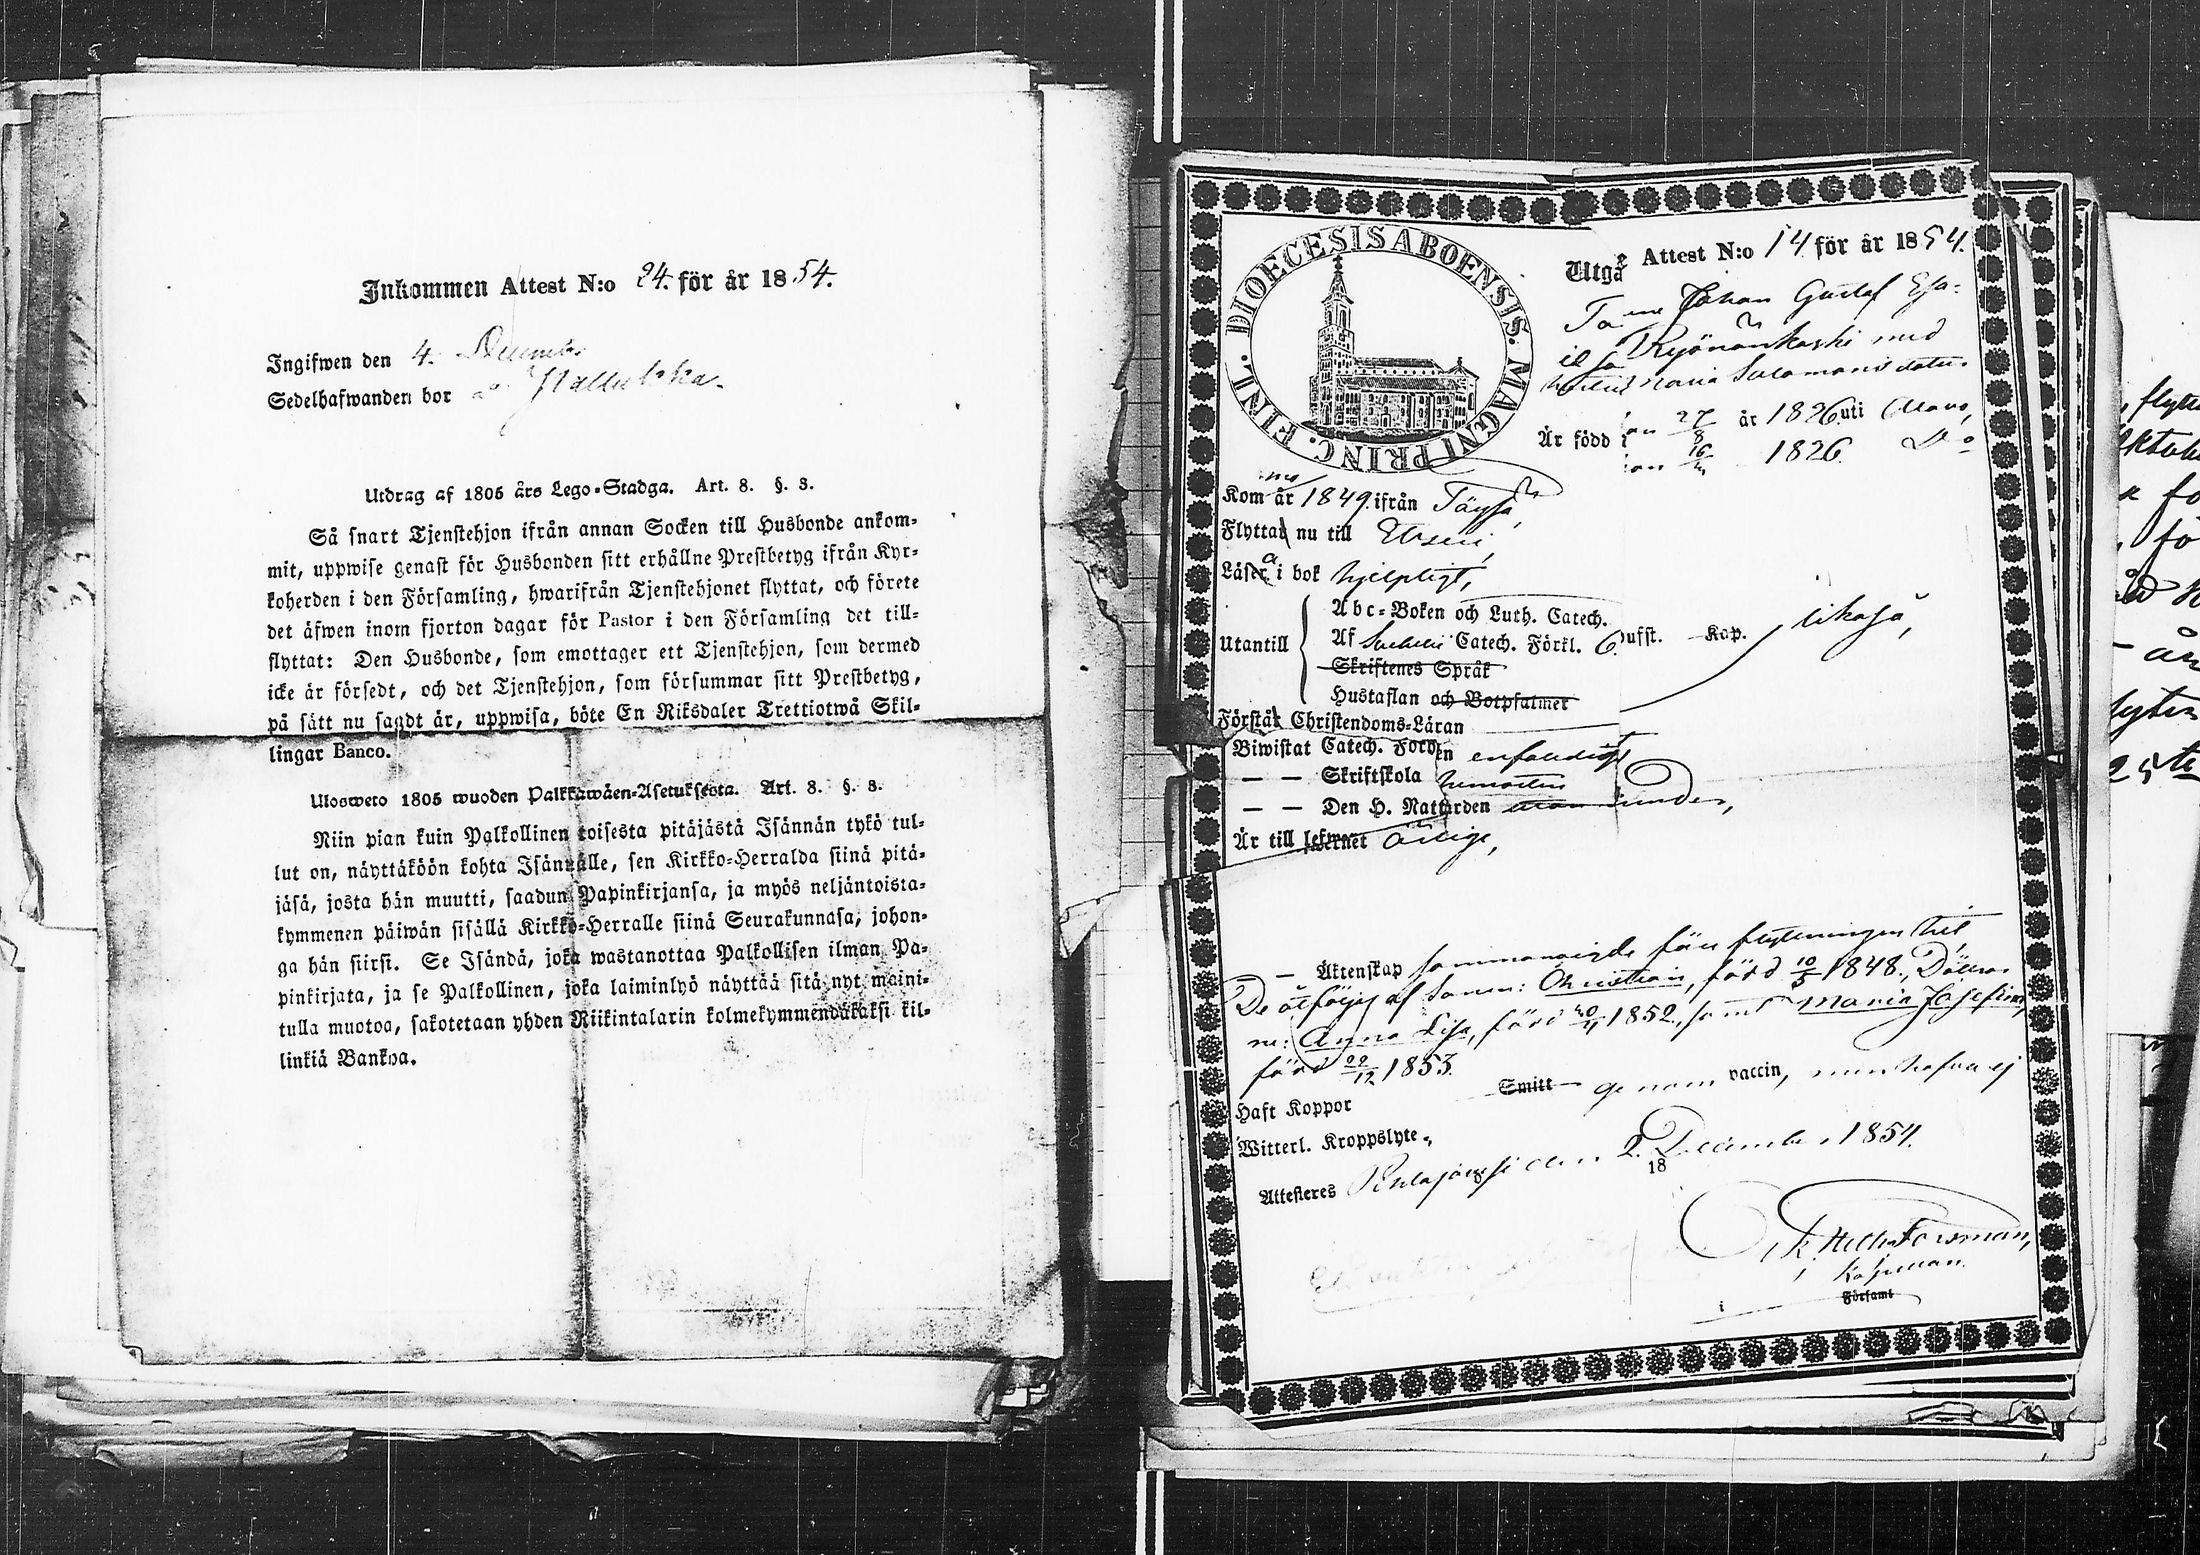 Inkommen Attest N:o 24. för år 1854.
Ingifwen den 4. December
Sedelhafwanden bor å
Utdrag af 1805 års Lego-Stadga. Art. 8. §. 3.
Så snart Tjenstehjon ifrån annan Socken till Husbonde ankom-
mit, uppwise genast för Husbonden sitt erhållne Prestbetyg ifrån Kyr-
koherden i den Församling, hwarifrån Tjenstehjonet flyttat, och förete
det äfwen inom fjorton dagar för Pastor i den Församling det till-
flyttat: Den Husbonde, som emottager ett Tjenstehjon, som dermed
icke är försedt, och det Tjenstehjon, som försummar sitt Prestbetyg,
på sätt nu sagdt är, uppwisa, böte En Riksdaler Trettiotwå Skil-
lingar Banco.
Ulosweto 1805 wuoden Palkkawäen-Asetuksesta. Art. 8. §. 3.
Niin pian kuin Palkollinen toisesta pitäjästä Isännän tykö tul-
lut on, näyttäköön kohta Isännälle, sen Kirkko-Herralda siinä pitä-
jäsä, josta hän muutti, saadun Papinkirjansa, ja myös neljäntoista-
kymmenen päiwän sisällä Kirkko-Herralle siinä Seurakunnasa, johon-
ga hän siirsi. Se Isändä, joka wastanottaa Palkollisen ilman Pa-
pinkirjata, ja se Palkollinen, joka laiminlyö näyttää sitä nyt maini-
tulla muotoa, sakotetaan yhden Riikintalarin kolmekymmendäkaksi kil-
linkiä Bankoa.
DIOECESIS ABOENSIS. MAGNI PRINC. FINL.
Utgå Attest N:o 14 för år 1854.
Johan Gustaf Esa-
med
Maria Salomonsdotter
Är född den 27/8 år 1826 uti Alavo,
1826. Do
Kom år 1849 ifrån Töysä,
Flyttar nu till Etseri,
Läser i bok hjelpligt,
Abc-Boken och Luth. Catech.
Utantill Af Svebelii Catech. Förkl. 6 Hufst. Kap. likaså,
Skriftenes Språk
Hustaflan och Botpsalmer
Förstår Christendoms-Läran
Biwistat Catech. Förhören enfaldigt
— — Skriftskola
— — Den H. Nattvarden
Är till lefwernet ärlige,
— Äktenskap sammanvigde före flyttningen hit
De åtföljes af Sonen: Christian, född 10/5 1848., Döttrar-
ne: Anna Lisa, född 20/4 1852, samt Maria Josefina,
född 22/12 1853.
Haft Koppor Smitt genom vaccin, men hafva ej
Witterl. Kroppslyte.
Attesteres Peräseinäjoki den 2. December 1854.
18
Forsman,
Kapellan.
i Församl